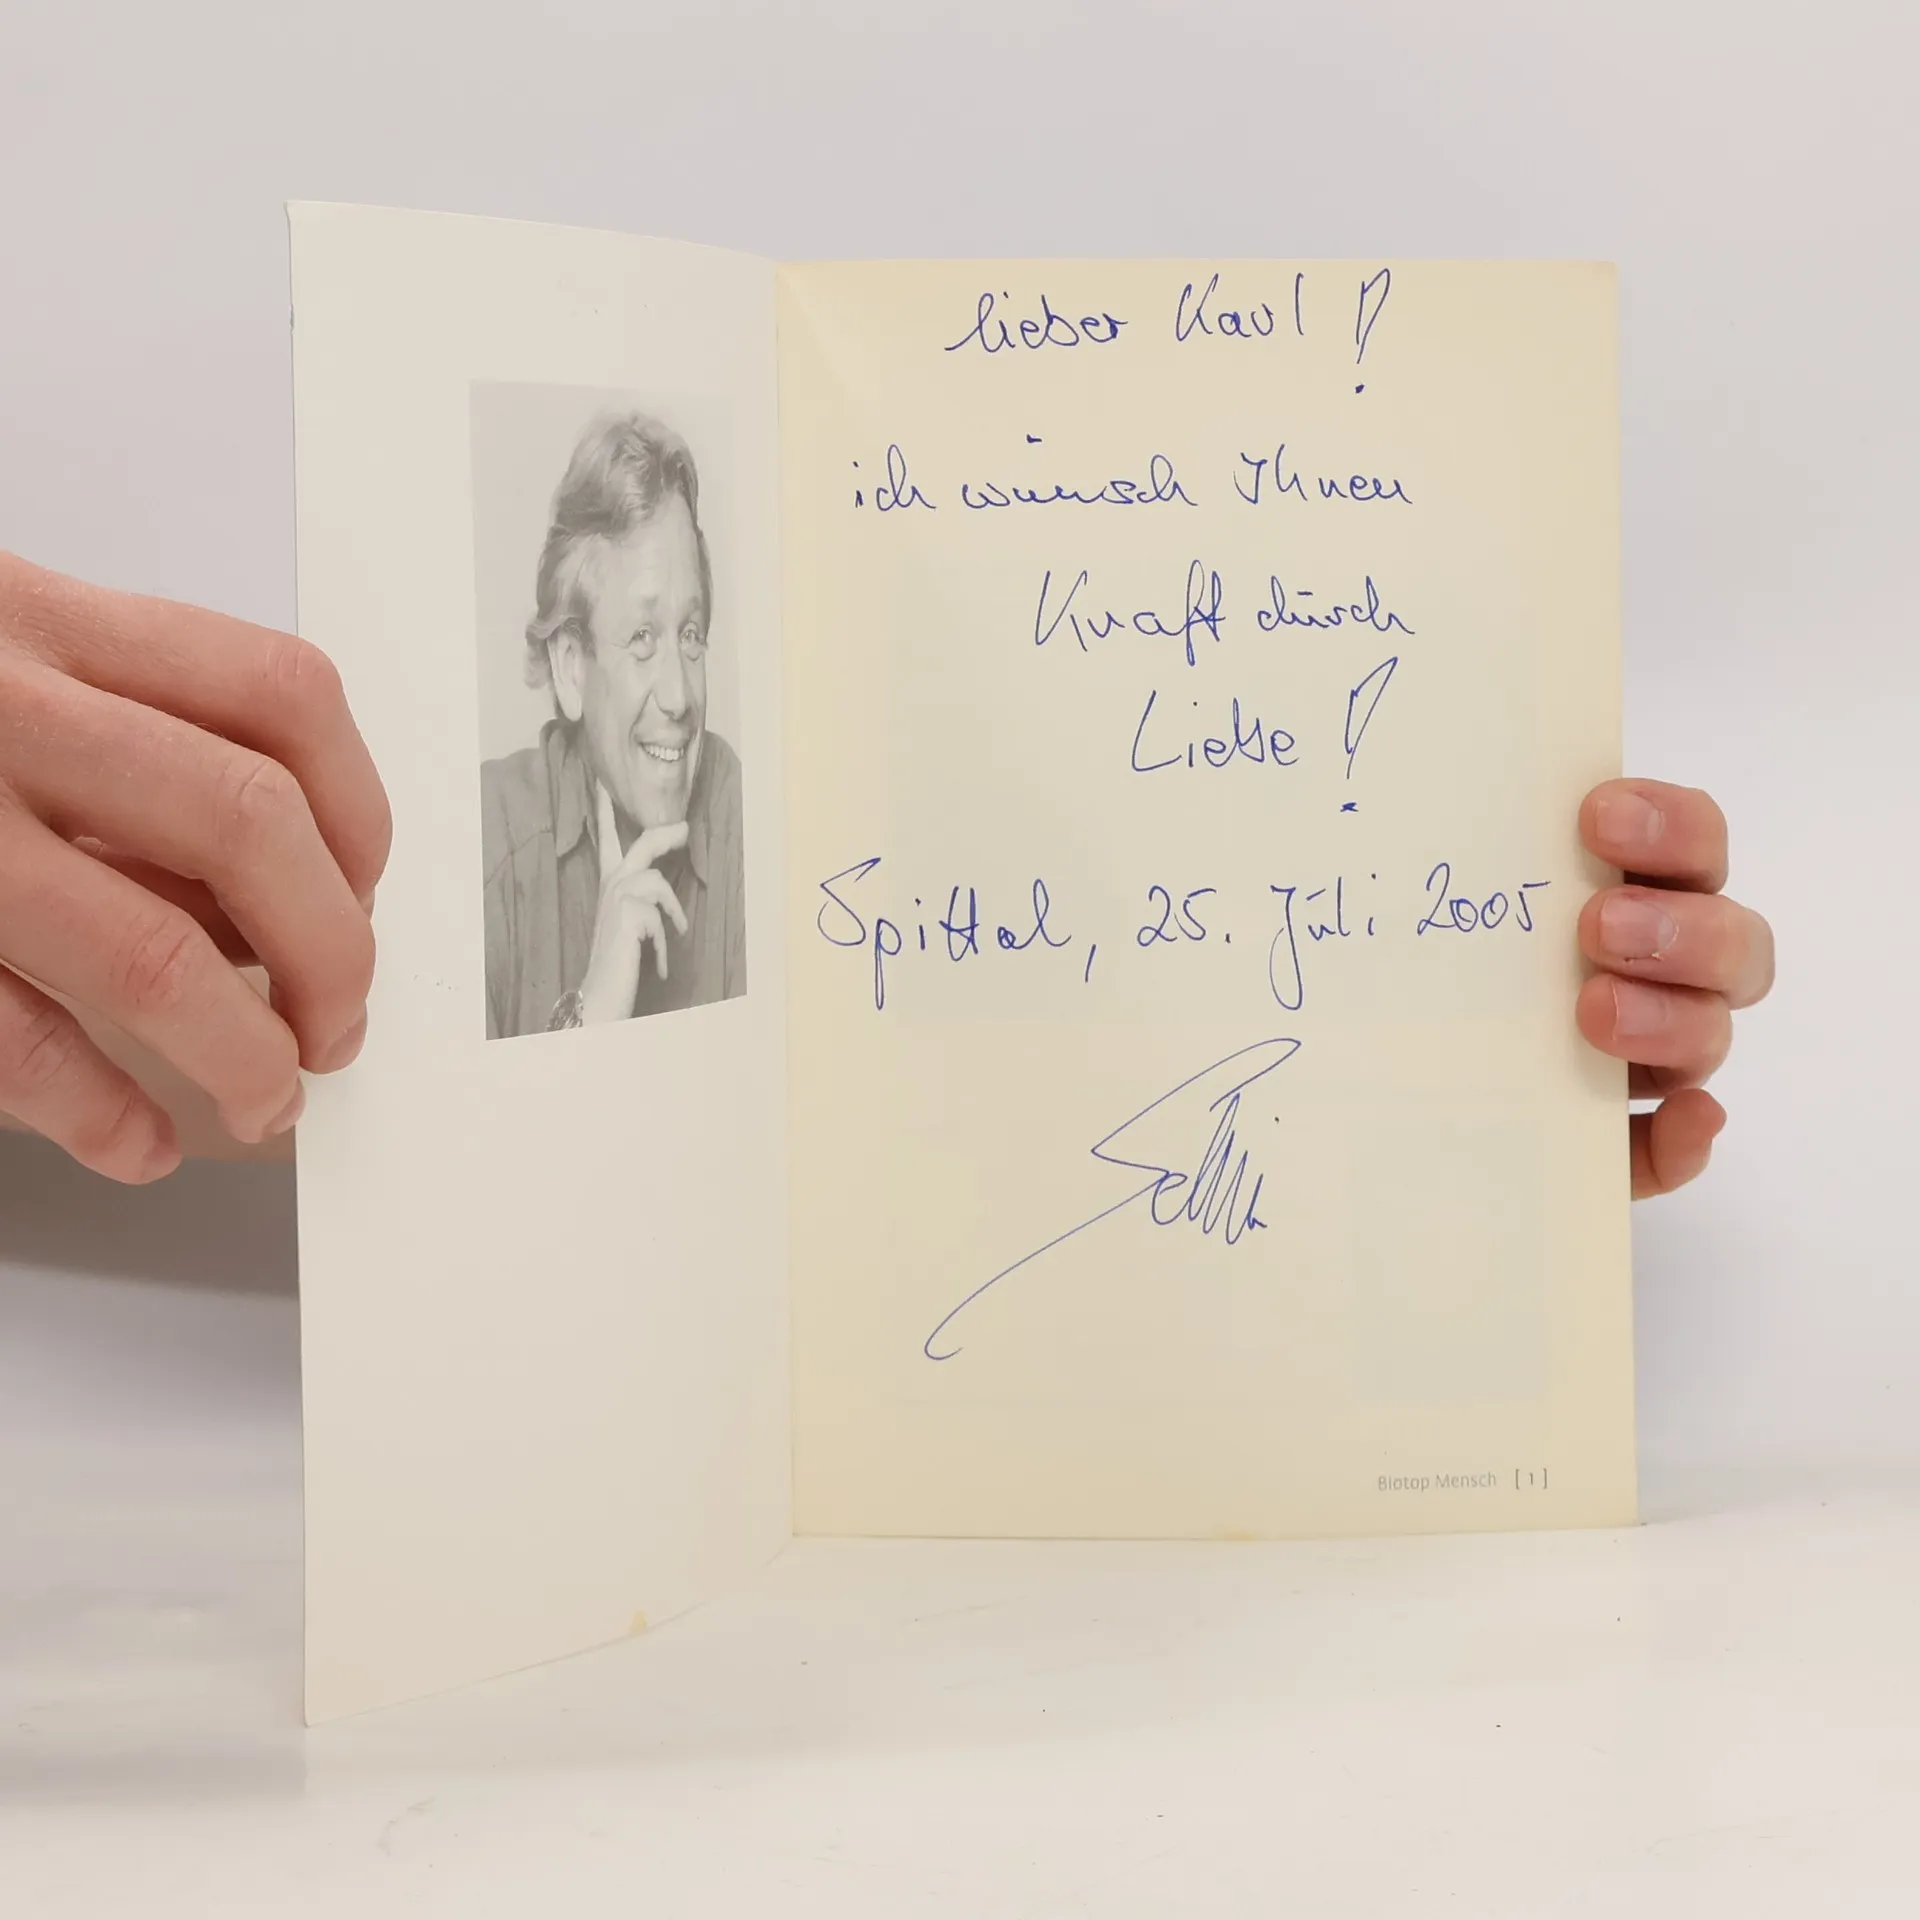 lieber Karl!
ich wünsch Ihnen
Kraft durch
Liebe!
Spittal, 25. Juli 2005
Biotop Mensch [ 1 ]